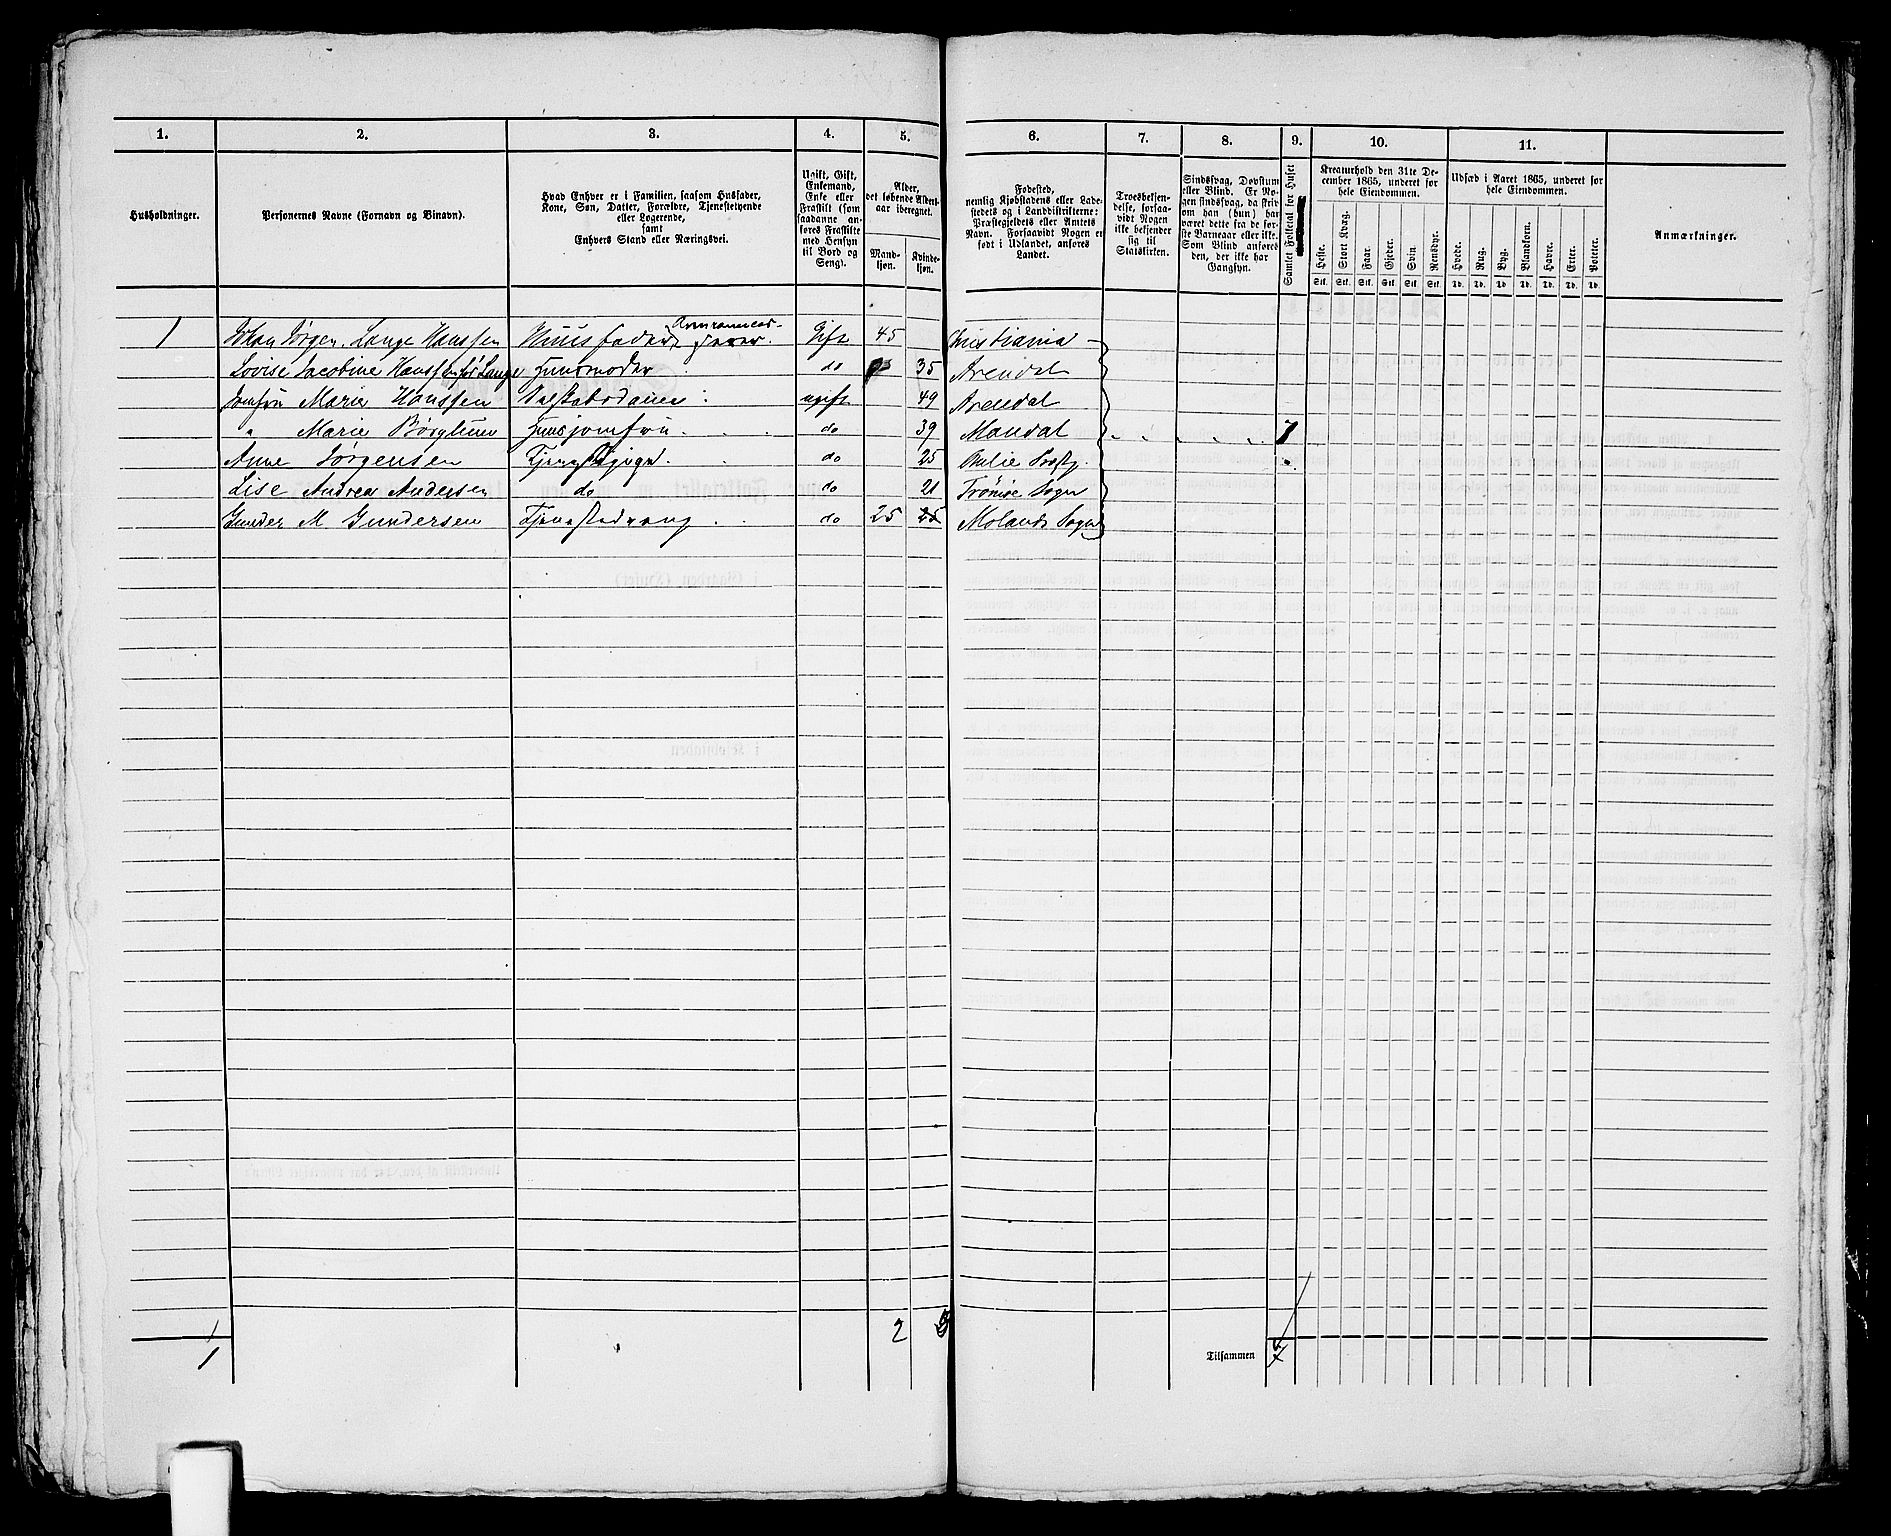 1. 2. 3. 4. 5. 6. 7. 8. 9. 10. 11.
Husholdninger.
Personernes Navne (Fornavn og Binavn).
Hvad Enhver er i Familien, saasom Husfader,
Kone, Søn, Datter, Forældre, Tjenestetyende
eller Logerende,
samt
Enhvers Stand eller Næringsvei.
Ugift, Gift,
Enkemand,
Enke eller
Fraskilt (som
saadanne an-
føres Fraskilte
med Hensyn
til Bord og
Seng).
Alder,
det løbende Alders-
aar iberegnet.
Mand-
kjøn.
Kvinde-
kjøn.
Fødested,
nemlig Kjøbstadens eller Lade-
stedets og i Landdistrikterne:
Præstegjeldets eller Amtets
Navn. Forsaavidt Nogen er
født i Udlandet, anføres
Landet.
Troesbekjen-
delse, forsaa-
vidt Nogen
ikke bekjender
sig til
Statskirken.
Sindssvag, Døvstum
eller Blind. Er No-
gen sindssvag, da skriv
om han (hun) har
været dette fra de før-
ste Barneaar eller ikke.
Som Blind anføres
den, der ikke har
Gangsyn.
Samlet Folketal for Huset
Kreaturhold den 31te De-
cember 1865, underet for
hele Eiendommen.
Heste. Stort Kvæg. Faar. Gjeder. Svin. Rensdyr.
Stk. Stk. Stk. Stk. Stk. Stk.
Udsæd i Aaret 1865, underet for
hele Eiendommen.
Hvede. Rug. Byg. Blandkorn. Havre. Erter. Poteter.
Td. Td. Td. Td. Td. Td. Td.
Anmærkninger.
1 Johan Jørgen Lange Hanssen Huusfader Gift 45 Christiania
Lovise Jacobine Hanssen før Lange Huusmoder do 35 Arendal
Jomfru Marie Hanssen ugift 49 Arendal
" Marie Børglum Huusjomfru do 39 Mandal 7
Anne Jørgensen Tjenestepige do 25
Lise Andrea Andersen do do 21 Trømø Sogn
Gunder M Gundersen Tjenestedreng do 25 25 Molands Sogn
2 5
1
Tilsammen 7